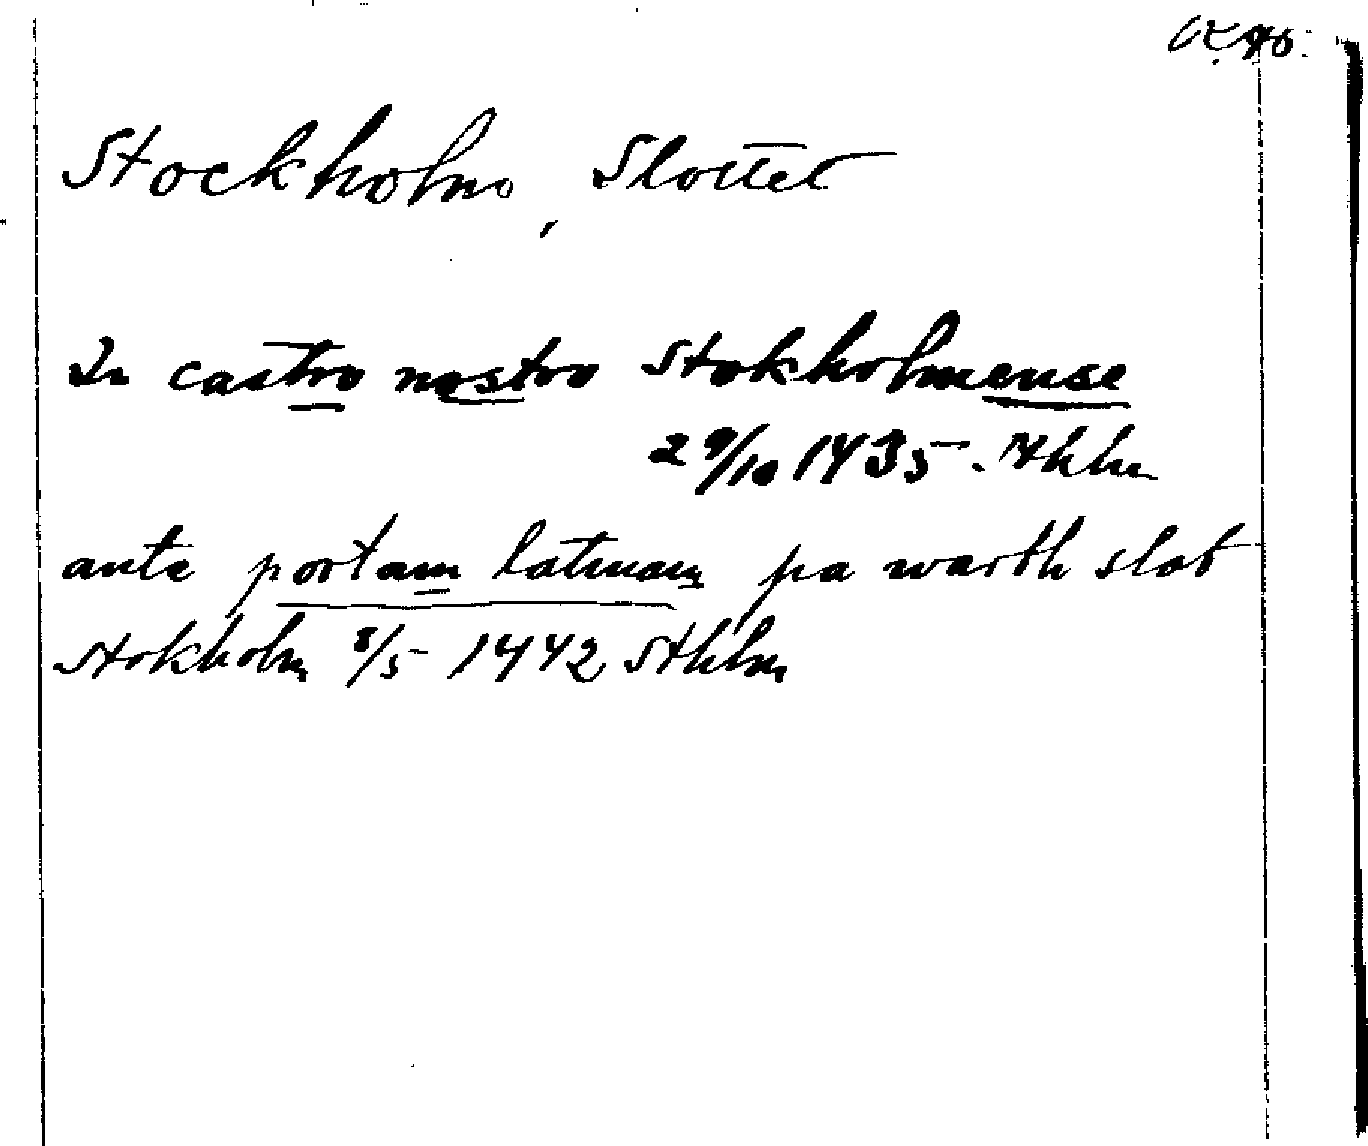 Stockholms, Slottet
In castro nostro Stokholmense
29/10 1435. Sthlm
ante portam latinam pa warth slot
Stokholm 8/5 1442 Sthlm